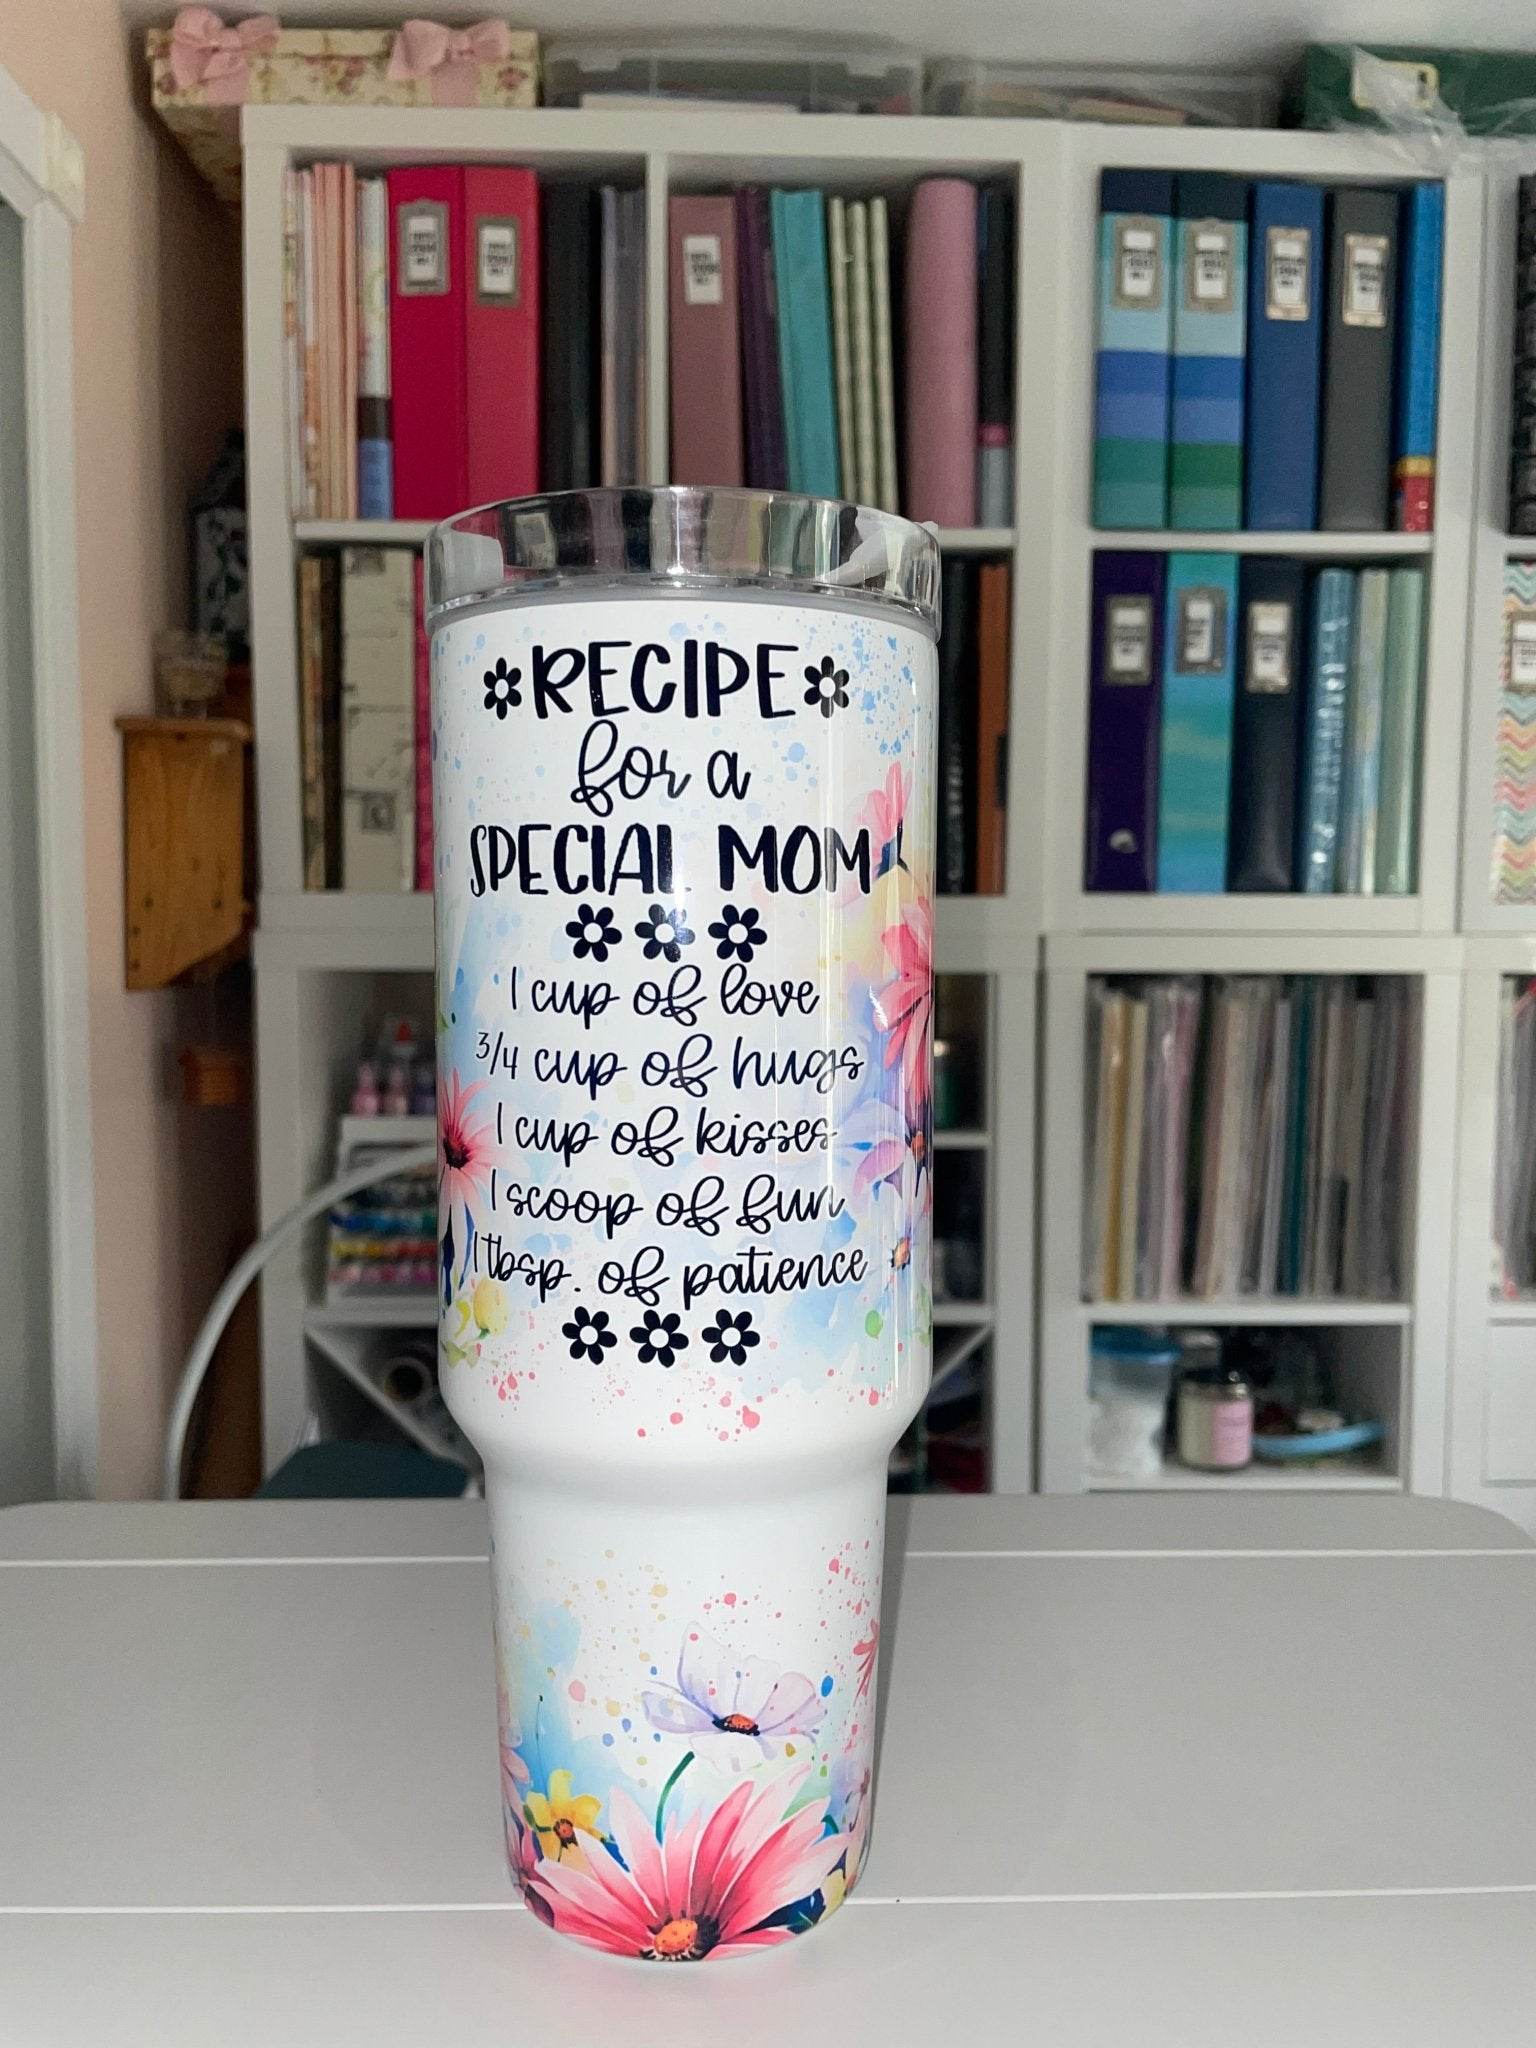 RECIPE
for a
SPECIAL MOM
1 cup of love
3/4 cup of hugs
1 cup of kisses
1 scoop of fun
1 tbsp. of patience